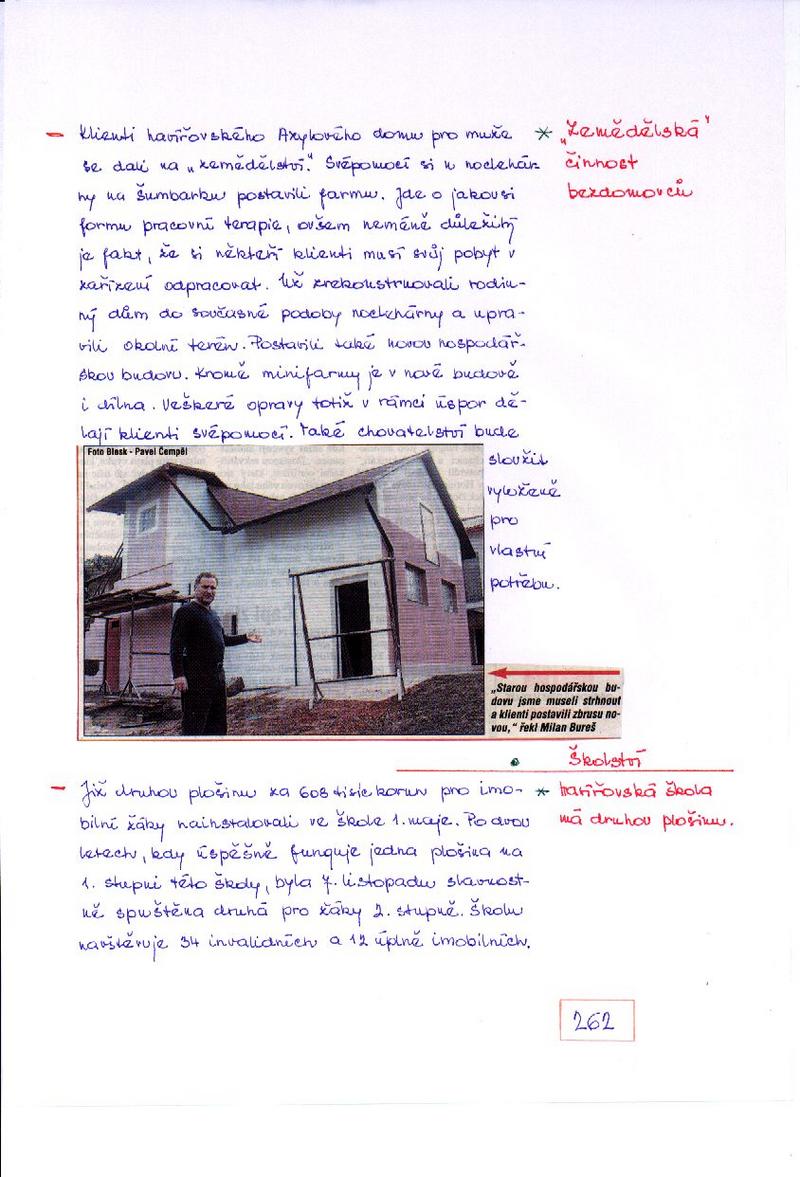 - Klienti havířovského Azylového domu pro muže
se dali na „zemědělství." Svépomocí si u noclehár-
ny na Šumbarku postavili farmu. Jde o jakousi
formu pracovní terapie, ovšem neméně důležitý
je fakt, že si někteří klienti musí svůj pobyt v
zařízení odpracovat. Už zrekonstruovali rodin-
ný dům do současné podoby noclehárny a upra-
vili okolní terén. Postavili také novou hospodář-
skou budovu. Kromě minifarmy je v nové budově
i dílna. Veškeré opravy totiž v rámci úspor dě-
lají klienti svépomocí. Také chovatelství bude
sloužit
vyloženě
pro
vlastní
potřebu.
* „Zemědělská"
činnost
bezdomovců
Foto Blesk - Pavel Čempěl
„Starou hospodářskou bu-
dovu jsme museli strhnout
a klienti postavili zbrusu no-
vou," řekl Milan Bureš
• Školství
- Již druhou plošinu za 608 tisíc korun pro imo-
bilní žáky nainstalovali ve škole 1. máje. Po dvou
letech, kdy úspěšně funguje jedna plošina na
1. stupni této školy, byla 7. listopadu slavnost-
ně spuštěna druhá pro žáky 2. stupně. Školu
navštěvuje 34 invalidních a 12 úplně imobilních.
* Havířovská škola
má druhou plošinu.
262